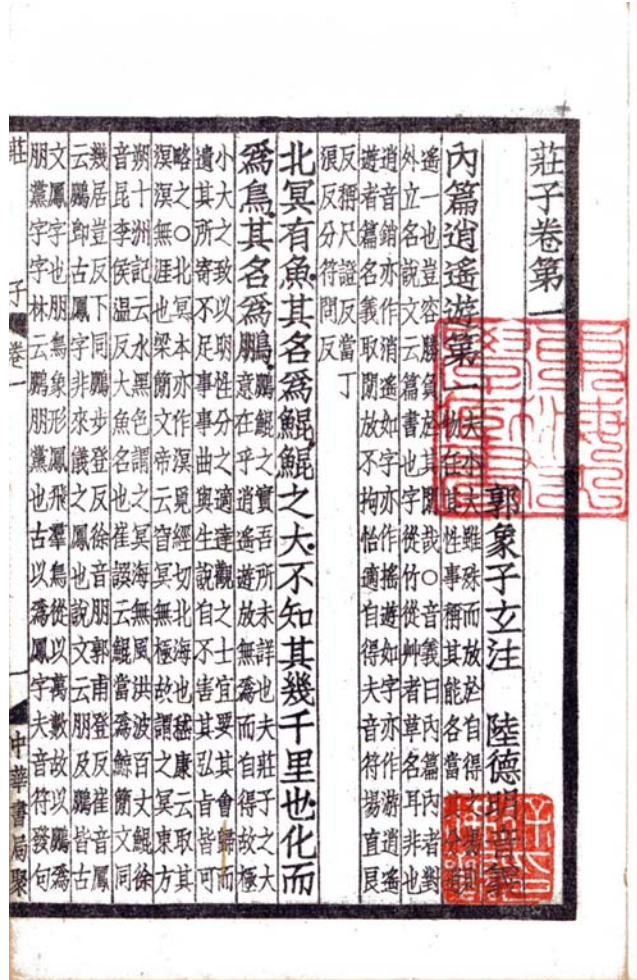 莊子卷第一
郭象子玄注　陸德明音義
內篇逍遙遊第一 夫小大雖殊而放於自得之場則
物任其性事稱其能各當其分逍
遙一也豈容勝負於其閒哉○音義曰內篇內者對
外立名說文云篇書也字從竹從艸者草名耳非也
逍音銷亦作消遙如字亦作搖遊如字亦作游逍遙
遊者篇名義取閒放不拘怡適自得夫音符場直良
反稱尺證反當丁
浪反分符問反
北冥有魚其名爲鯤鯤之大不知其幾千里也化而
爲鳥其名爲鵬 鵬鯤之實吾所未詳也夫莊子之大
意在乎逍遙遊放無爲而自得故極
小大之致以明性分之適達觀之士宜要其會歸而
遺其所寄不足事事曲與生說自不害其弘旨皆可
略之○北冥本亦作溟覓經切北海也嵇康云取其
溟漠無涯也梁簡文帝云窅冥無極故謂之冥東方
朔十洲記云水黑色謂之冥海無風洪波百丈鯤徐
音昆李侯温反大魚名也崔譔云鯤當爲鯨簡文同
幾居豈反下同鵬步登反徐音朋郭甫登反崔音鳳
云鵬卽古鳳字非來儀之鳳也說文云朋及鵬皆古
文鳳字也朋鳥象形鳳飛羣鳥從以萬數故以鵬爲
朋黨字字林云鵬朋黨也古以爲鳳字夫音符發句
莊子 卷一 一 中華書局聚